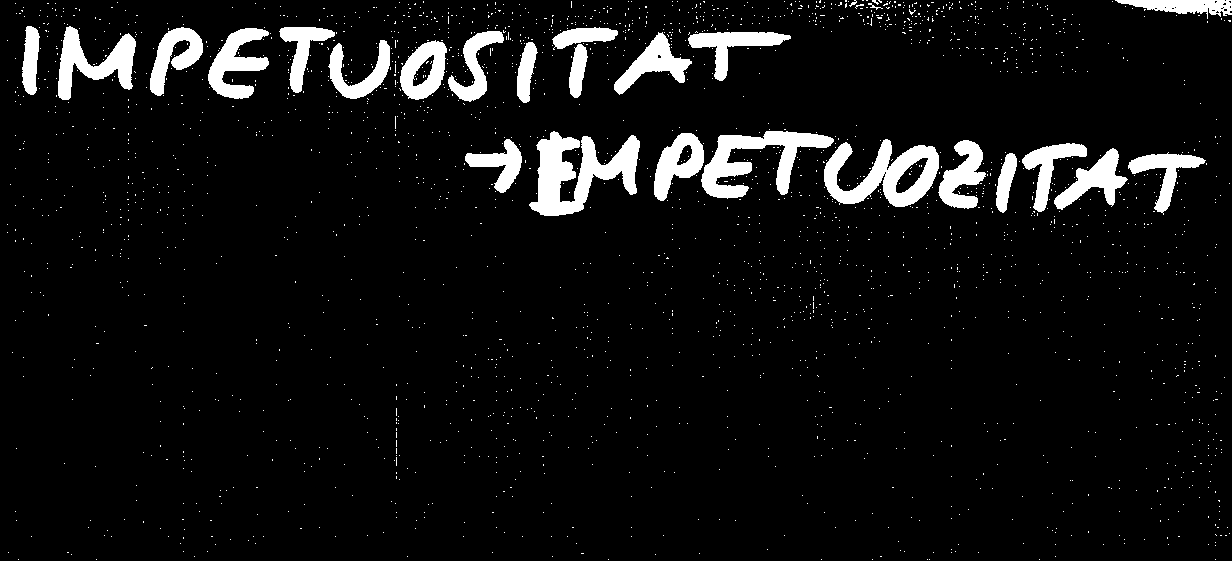 IMPETUOSITAT
→ EMPETUOZITAT